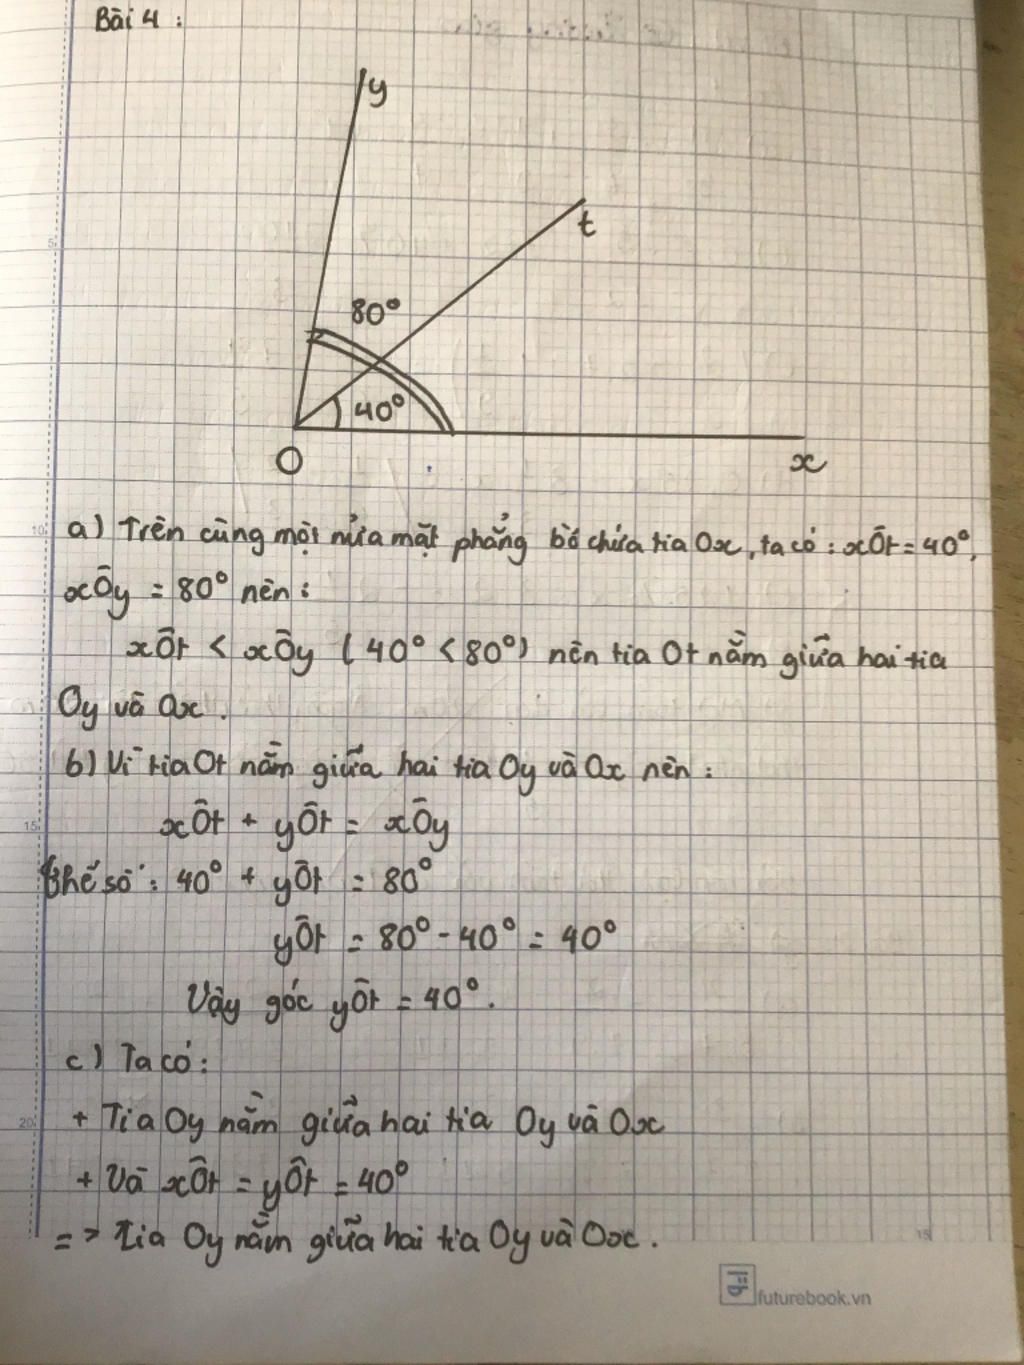 Bài 4 :
y
t
80°
40°
O
x
5
10 a) Trên cùng một nửa mặt phẳng bờ chứa tia Ox, ta có : xÔt = 40°,
xÔy = 80° nên :
xÔt < xÔy ( 40° < 80°) nên tia Ot nằm giữa hai tia
Oy và Ox .
b) Vì tia Ot nằm giữa hai tia Oy và Ox nên :
15 xÔt + yÔt = xÔy
Thế số : 40° + yÔt = 80°
yÔt = 80° - 40° = 40°
Vậy góc yÔt = 40° .
c) Ta có :
20 + Tia Oy nằm giữa hai tia Oy và Ox
+ Và xÔt = yÔt = 40°
=> tia Oy nằm giữa hai tia Oy và Ox .
15
futurebook.vn